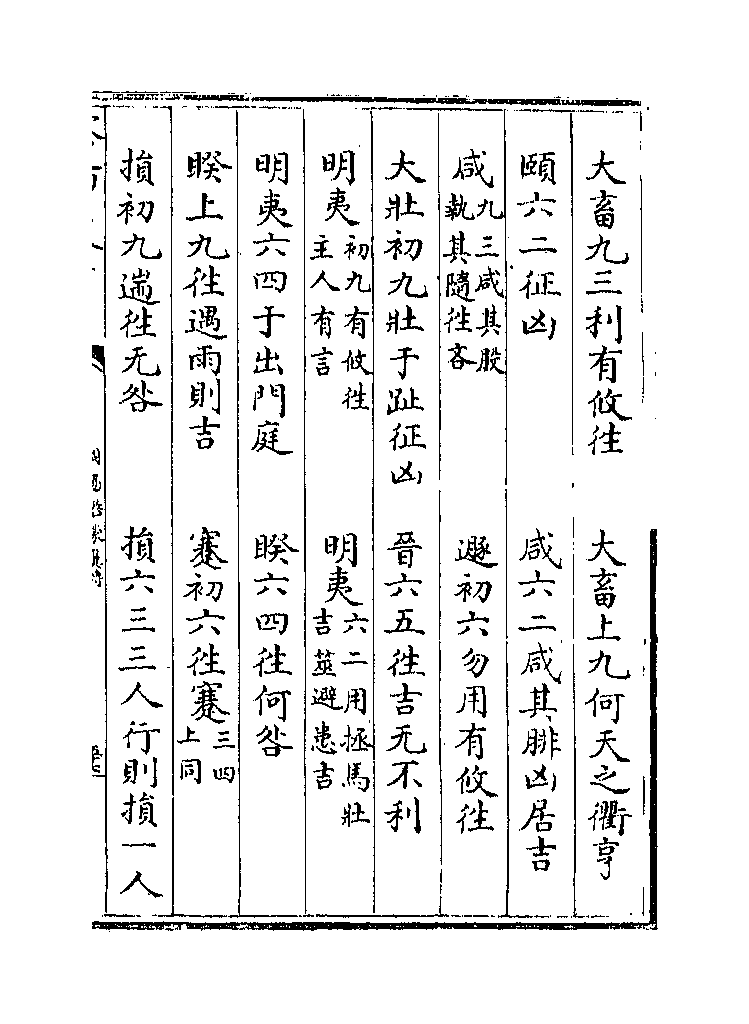 大畜九三利有攸徃　大畜上九何天之衢亨
頤六二征凶　咸六二咸其腓凶居吉
咸九三咸其股執其隨徃吝　遯初六勿用有攸徃
大壯初九壯于趾征凶　晉六五徃吉无不利
明夷初九有攸徃主人有言　明夷六二用拯馬壯吉筮避患吉
明夷六四于出門庭　睽六四徃何咎
睽上九徃遇雨則吉　蹇初六徃蹇三四上同
損初九遄徃无咎　損六三三人行則損一人